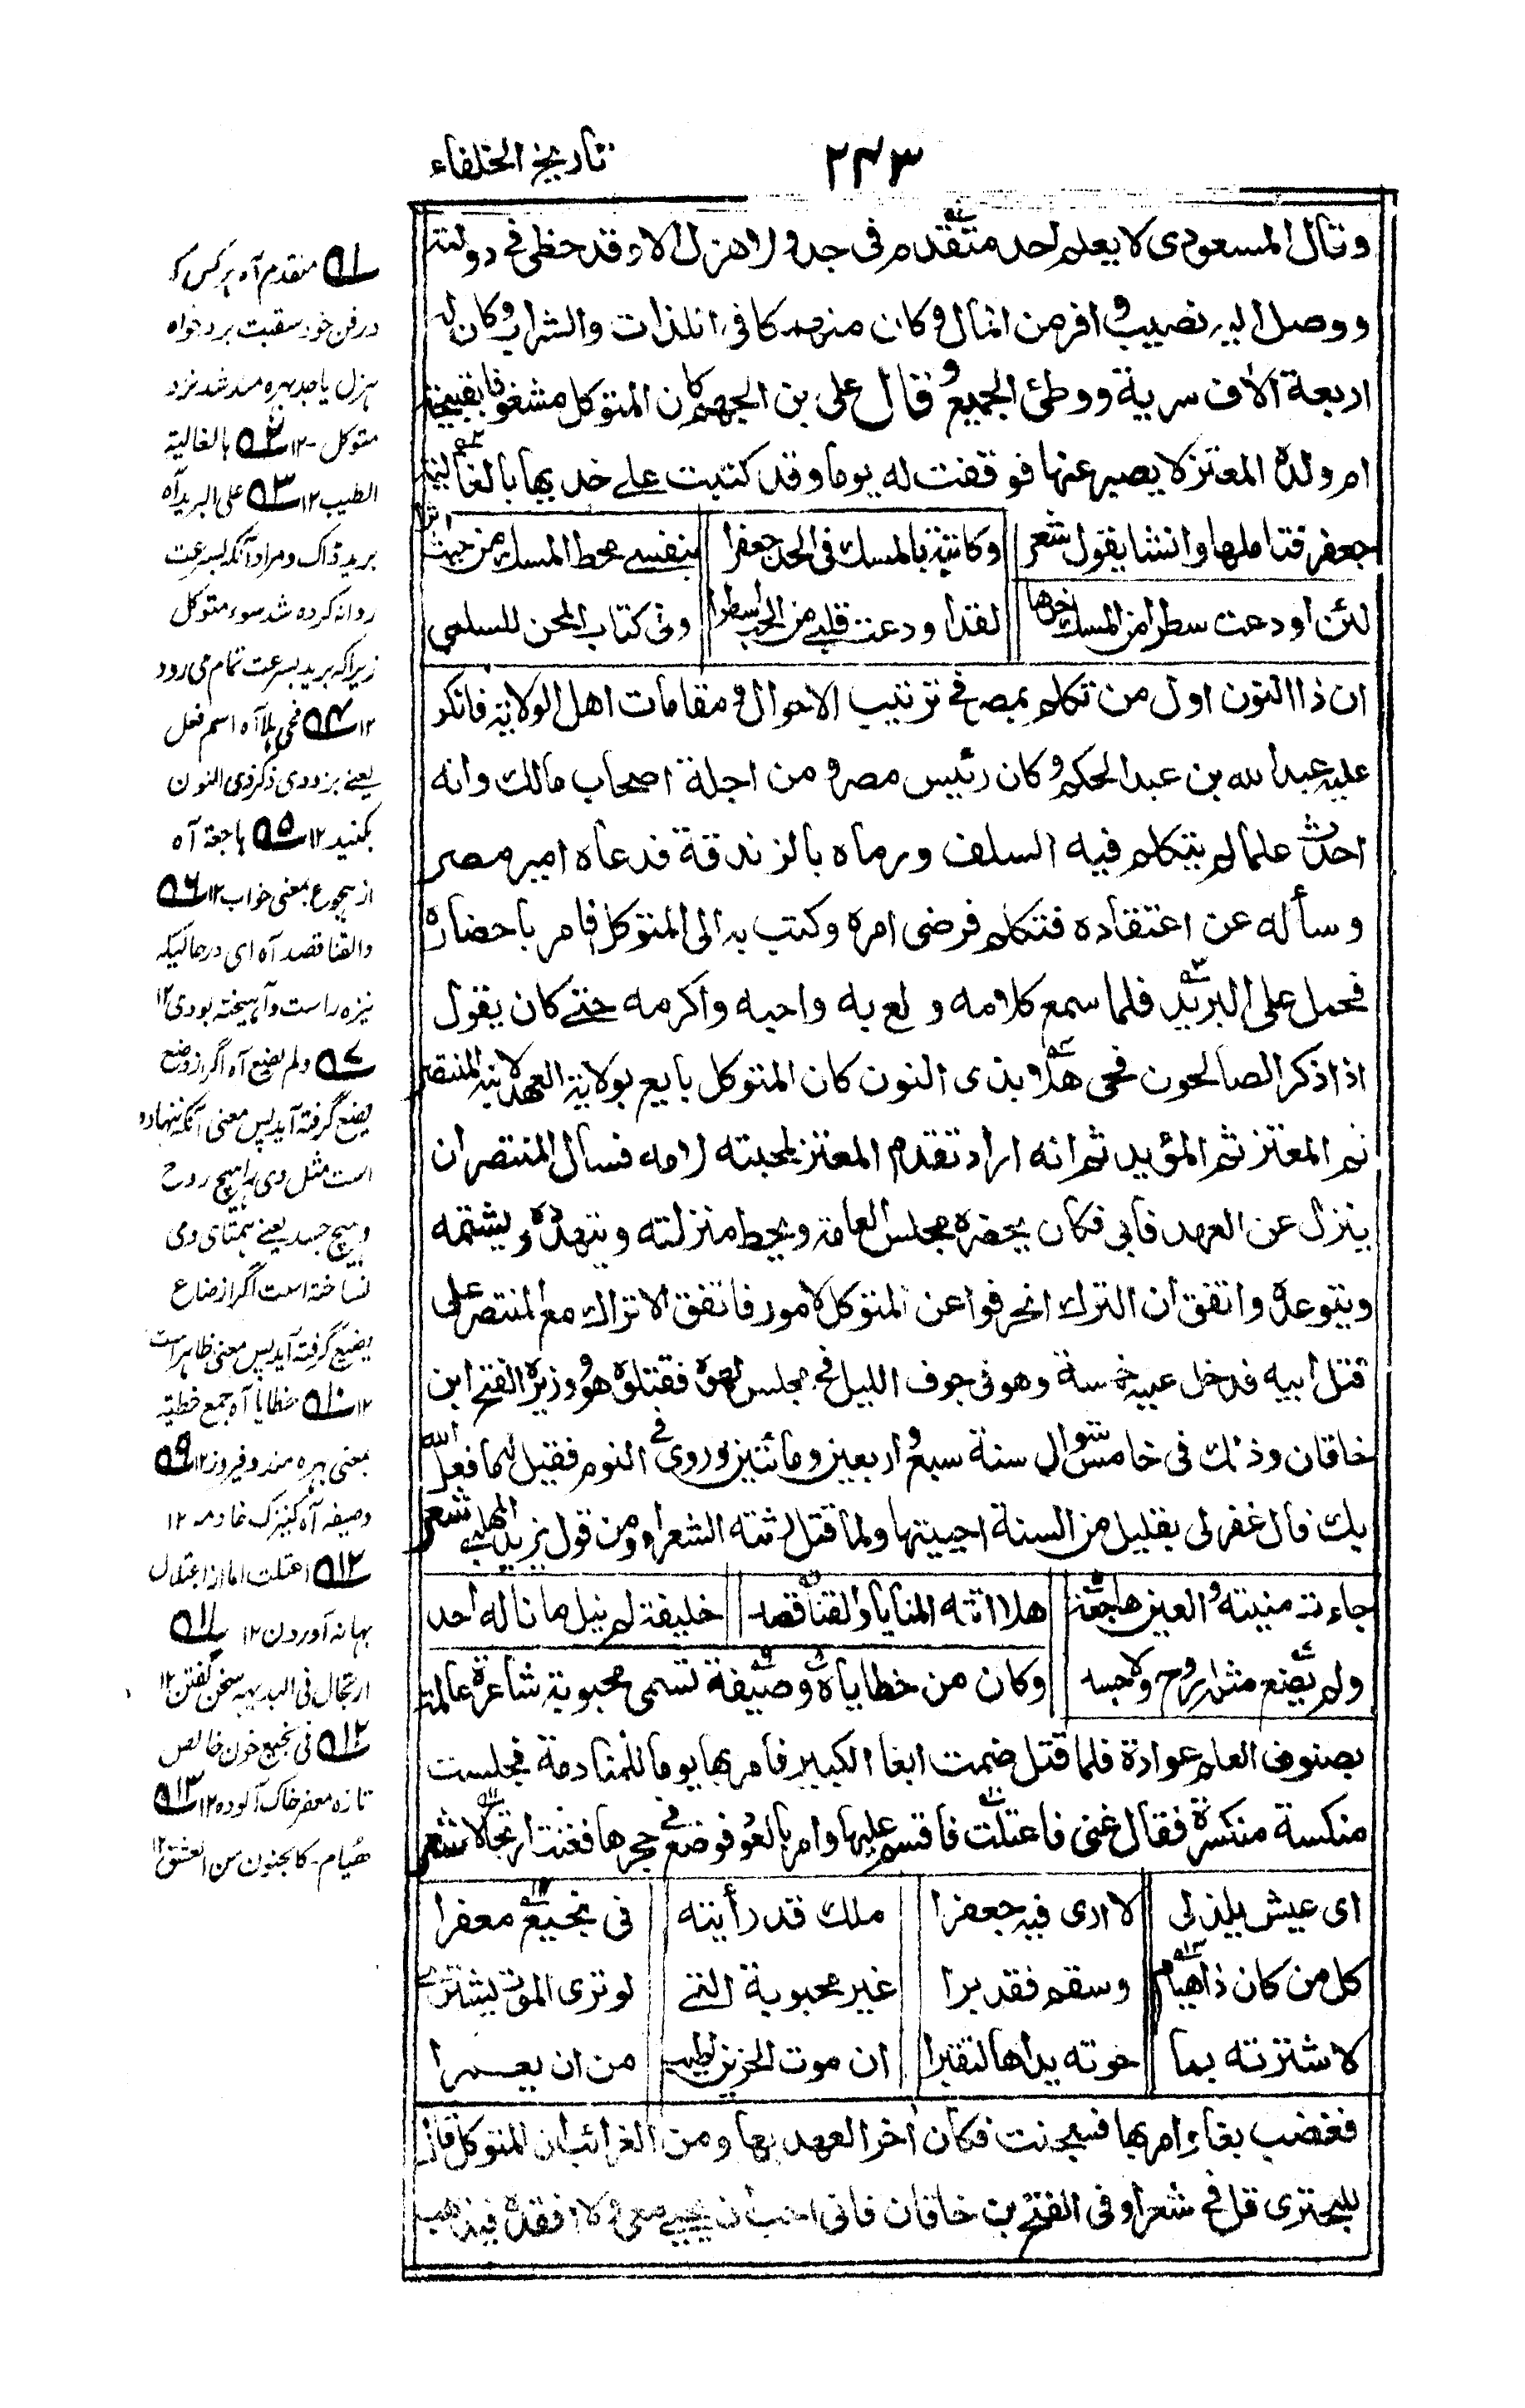 تاريخ الخلفاء
٢٤٣
وقال المسعودى لا يعلم احد متقدم فى جد ولا هزل الا وقد حظى فى دولته
ووصل اليه نصيب وافر من المال وكان منهمكا فى اللذات والشراب وكان له
اربعة الاف سرية ووطئ الجميع وقال على بن الجهم كان المتوكل مشغوفا بقبيحة
ام ولده المعتز لا يصبر عنها فوقفت له يوما وقد كتبت على خديها بالغالية
جعفر فتاملها وانشا يقول شعر وكاتبة بالمسك فى الخد جعفرا بنفسى محط المسك من حيث اثرا
لئن اودعت سطرا من المسك خدها لقد اودعت قلبى من الحب اسطرا وفى كتاب المحن للسلمى
ان ذا النون اول من تكلم بمصر فى ترتيب الاحوال ومقامات اهل الولاية فانكر
عليه عبد الله بن عبد الحكم وكان رئيس مصر و من اجلة اصحاب مالك وانه
احدث علما لم يتكلم فيه السلف ورماه بالزندقة فدعاه امير مصر
وسأله عن اعتقاده فتكلم فرضى امره وكتب به الى المتوكل فامر باحضاره
فحمل على البريد فلما سمع كلامه ولع به واحبه واكرمه حتى كان يقول
اذا ذكر الصالحون فحى هلا بذى النون كان المتوكل بايع بولاية العهد لابنه المنتصر
ثم المعتز ثم المؤيد ثم انه اراد تقدم المعتز لمحبته لامه فسال المنتصر ان
ينزل عن العهد فابى فكان يحضره مجلس العامة ويحط منزلته ويتهدده ويشتمه
ويتوعده واتفق ان الترك انحرفوا عن المتوكل لامور فاتفق الاتراك مع المنتصر على
قتل ابيه فدخل عليه خمسة وهو فى جوف الليل فى مجلس لهوه فقتلوه هو ووزيره الفتح ابن
خاقان وذلك فى خامس شوال سنة سبع واربعين ومائتين وروى فى النوم فقيل له ما فعل الله
بك قال غفر لى بقليل من السنة احييتها ولما قتل رثته الشعراء ومن قول يزيد المهلبى شعر
جاءت منيته والعين هاجعة هلا اتته المنايا والقنا قصد خليفة لم ينل ما ناله احد
ولم يضع مثله روح ولا جسد وكان من خطاياه وصيفة تسمى محبوبة شاعرة عالمة
بصنوف العلم عوادة فلما قتل ضمت ابغا الكبير فامر بها يوما للمنادمة فجلست
منكسة منكسرة فقال غنى فاعتلت فاقسم عليها وامر بالعود فوضع فى حجرها فغنت ارتجالا شعر
اى عيش يلذ لى لا ارى فيه جعفرا ملك قد رأيته فى نجيع معفرا
كل من كان ذا هيام وسقم فقد برا غير محبوبة التى لو ترى الموت يشترى
لاشترته بما حوته يداها لتقبرا ان موت الحزين اطيب من ان يعمرا
فغضب بغا وامر بها فسجنت فكان اخر العهد بها ومن الغرائب ان المتوكل قال
للبحترى قل فى شعرا وفى الفتح بن خاقان فانى احب ان يحيى معى ولا افقده فيذهب
١ه متقدم آه ہر کس کہ
در فن خود سبقت برد خواہ
ہزل یا جد بہرہ مند شد نزد
متوکل - ١٢ ٢ه بالغالیة
الطیب ١٢ ٣ه علی البرید آہ
برید ڈاک و مراد آنکہ بسرعت
روانہ کردہ شد سوے متوکل
زیراکہ برید بسرعت تمام می رود
١٢ ٤ه فحی ہلا آہ اسم فعل
یعنے بزودی ذکر ذی النون
بکنید ١٢ ٥ه ہاجعة آہ
از ہجوع بمعنی خواب ١٢ ٦ه
والقنا قصد آہ ای در حالیکہ
نیزہ راست و آہیختہ بودی ١٢
٧ه ولم یضع آہ اگر از وضع
یضع گرفتہ آید پس معنی آنکہ ننہادہ
است مثل وی را ہیچ روح
و ہیچ جسد یعنے ہمتای وی
نساختہ است اگر از ضاع
یضیع گرفتہ آید پس معنی ظاہر است
١٢ ٨ه خطایا آہ جمع خطیہ
بمعنی بہرہ مند و فیروز ١٢ ٩ه
وصیفہ آہ کنیزک خادمہ ١٢
١٢ه اعتلت اما از اعتلال
بہانہ آوردن ١٢ ١١ه
ارتجال فی البدیہہ سخن گفتن ١٢
١٢ه فی نجیع خون خالص
تازہ معفر خاک آلودہ ١٢ ١٣ه
ھُیام - کالجنون من العشق ١٢